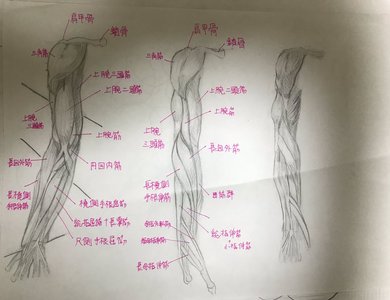 肩甲骨
鎖骨
三角筋
上腕二頭筋
上腕二頭筋
上腕
三頭筋
上腕筋
長回外筋
円回内筋
長橈側
手根伸筋
橈側手根屈筋
総指屈筋+長掌筋
尺側手根屈筋
肩甲骨
鎖骨
三角筋
上腕二頭筋
上腕筋
上腕
三頭筋
長回外筋
長橈側
手根伸筋
屈筋群
総指伸筋
小指伸筋
長母指伸筋